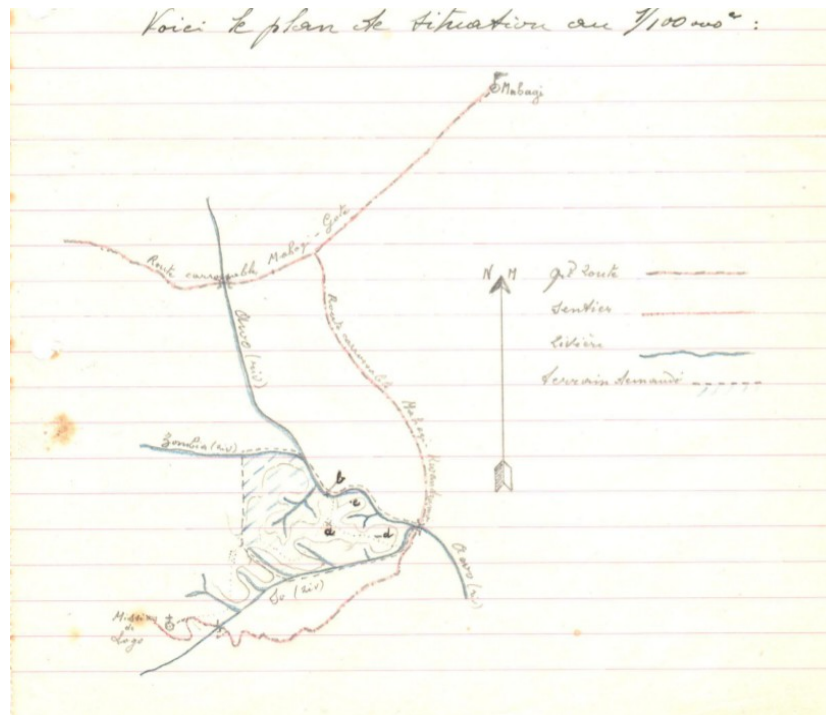 Voici le plan de situation au 1/100000e :
Mahagi
Route carrossable Mahagi - Gote
N M
gde Route
Sentier
Rivière
terrain demandé
Awo (riv)
Route carrossable Mahagi
Zombia (riv)
b
c
a
d
Awo (riv)
Su (riv)
Mission
de
Logo